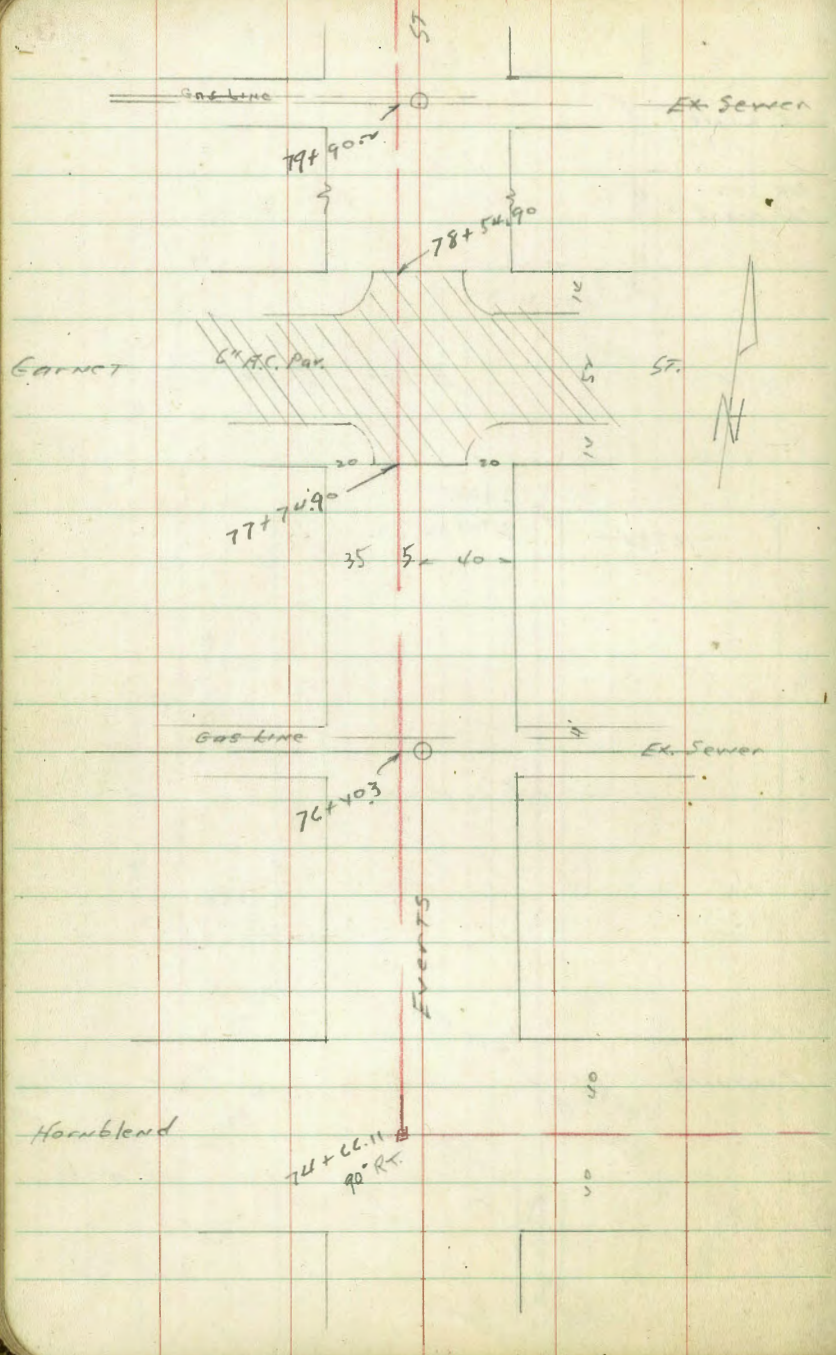 ST
Gas Line
Ex. Sewer
79+90.2
78+54.90
14
Garnet
6" A.C. Pav.
52
ST.
N
14
20
20
77+74.90
35 5 40
Gas Line
Ex. Sewer
76+40.3
Everts
40
Hornblend
74+66.11
90° Rt.
40